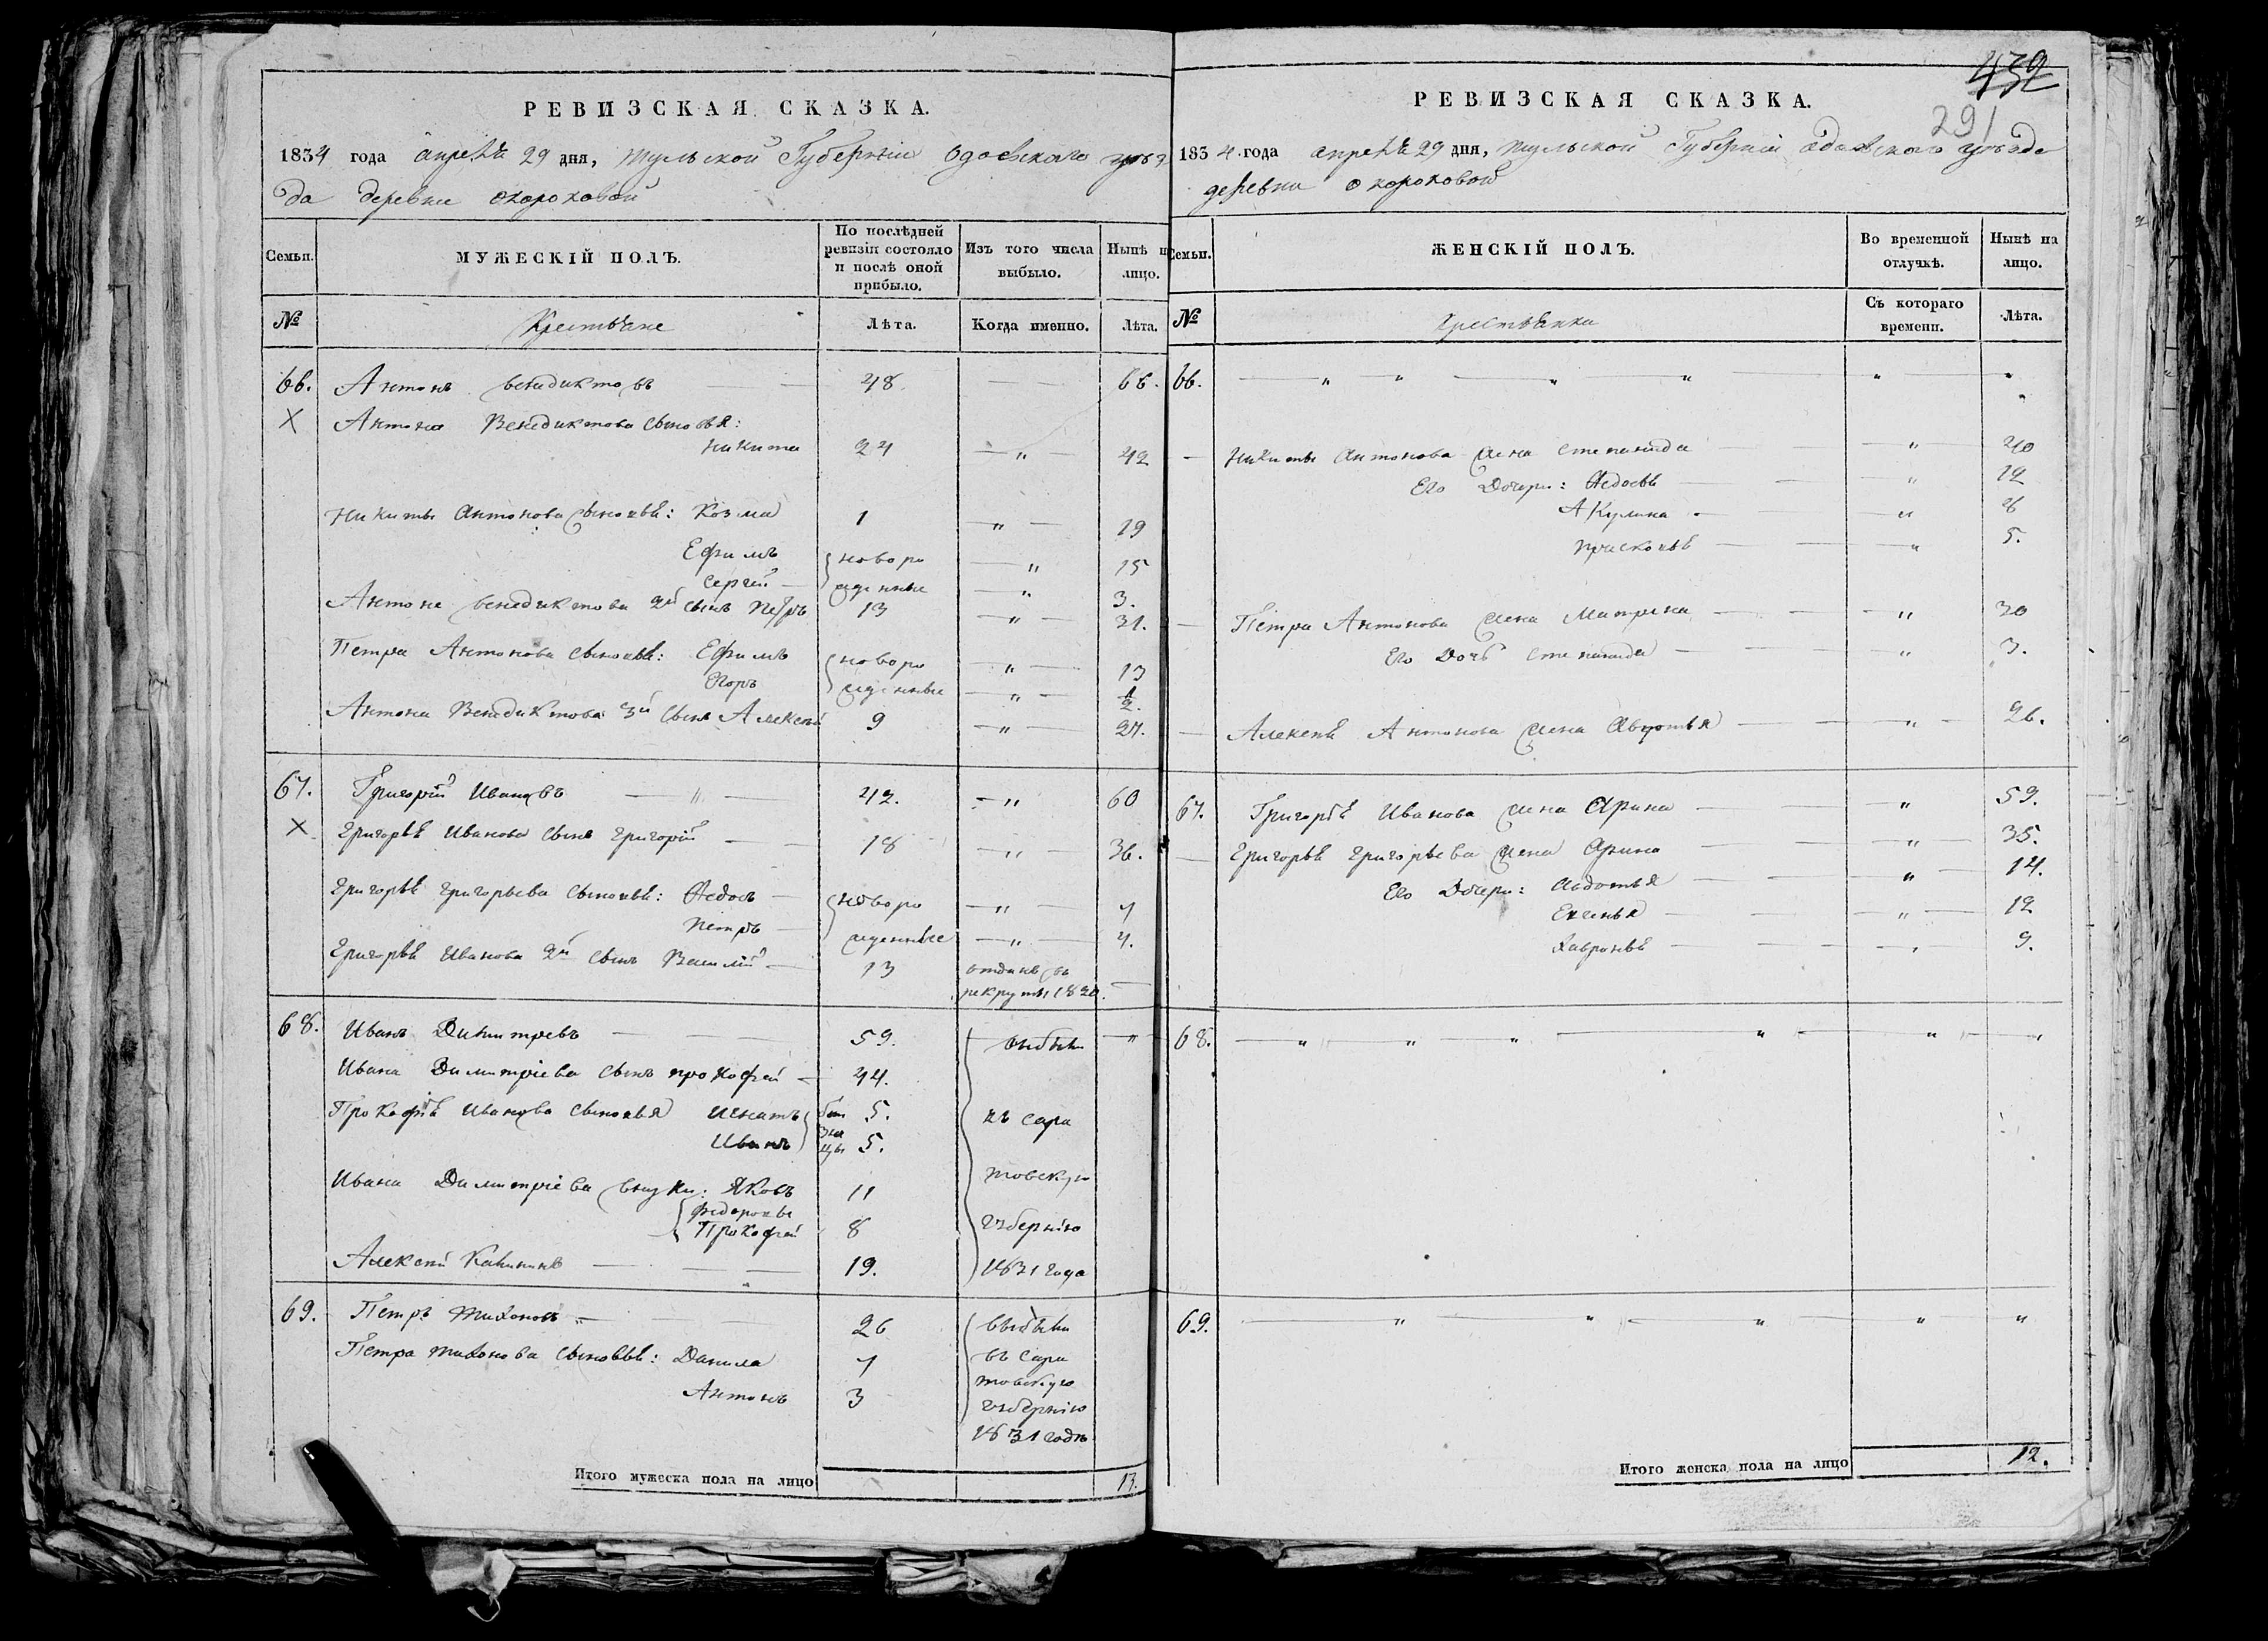 РЕВИЗСКАЯ СКАЗКА.
1834 года апреля 29 дня, тульской Губернии Одоевскаго уѣз
да деревне
Семьи.
МУЖЕСКІЙ ПОЛЪ.
По послѣдней ревизіи состояло и послѣ оной прибыло.
Изъ того числа выбыло.
Нынѣ н лицо.
№
Крестьяне
Лѣта.
Когда именно.
Лѣта.
66. Антонъ венедиктовъ 48. 66.
Х Антона Венедиктова сыновья:
Никита 24 42
Никиты Антонова сыновья: Козма 1 19
Ефимъ новоро 15
Сергей жденные 3.
Антона венедиктова 2й сынъ Петръ 13 31.
Петра Антонова сыновья: Ефимъ новоро 13
Егоръ жденные 1/2.
Антона Венедиктова 3й сынъ Алексей 9 27.
67. Григорій Ивановъ 42. 60
Х Григорья Иванова сынъ григорій 18 36.
Григорья григорьева сыновья: Федосъ новоро 7
Петръ жденные 4.
Григорья Иванова 2й сынъ Василій 13 отданъ въ
рекруты 1820.
68. Иванъ Димитревъ 59. выбыли
Ивана Димитріева сынъ прокофей 44.
Прокофья Иванова сыновья Игнатъ близ 5. въ сара
Иванъ нцы 5.
Ивана Димитріева внуки: Яковъ 11 товскую
федоровы
Прокофей 8 губернію
Алексей 19. 1831 года
69. Петръ тихоновъ 26 выбыли
Петра тихонова сыновья: Данила 7 въ сара
товскую
Антонъ 3 губернію
1831 года
Итого мужеска пола на лицо 13.
432
291
РЕВИЗСКАЯ СКАЗКА.
1834 года апреля 29 дня, тульской Губерніи одоевскаго уѣзда
деревни
Семьи.
ЖЕНСКІЙ ПОЛЪ.
Во временной отлучкѣ.
Нынѣ на лицо.
№
Крестьянки
Съ котораго времени.
Лѣта.
66.
Никиты Антонова жена степанида 40
Его Дочери: Федосья 12
Акулина 8
Прасковья 5.
Петра Антонова жена Матрена 30
Его Дочь степанида 3.
Алексея Антонова жена Авдотья 26.
67. Григорья Иванова жена Арина 59.
Григорья григорьева жена Арина 35.
Его Дочери: Авдотья 14.
12
Хавронья 9.
68.
69.
Итого женска пола на лицо 12.